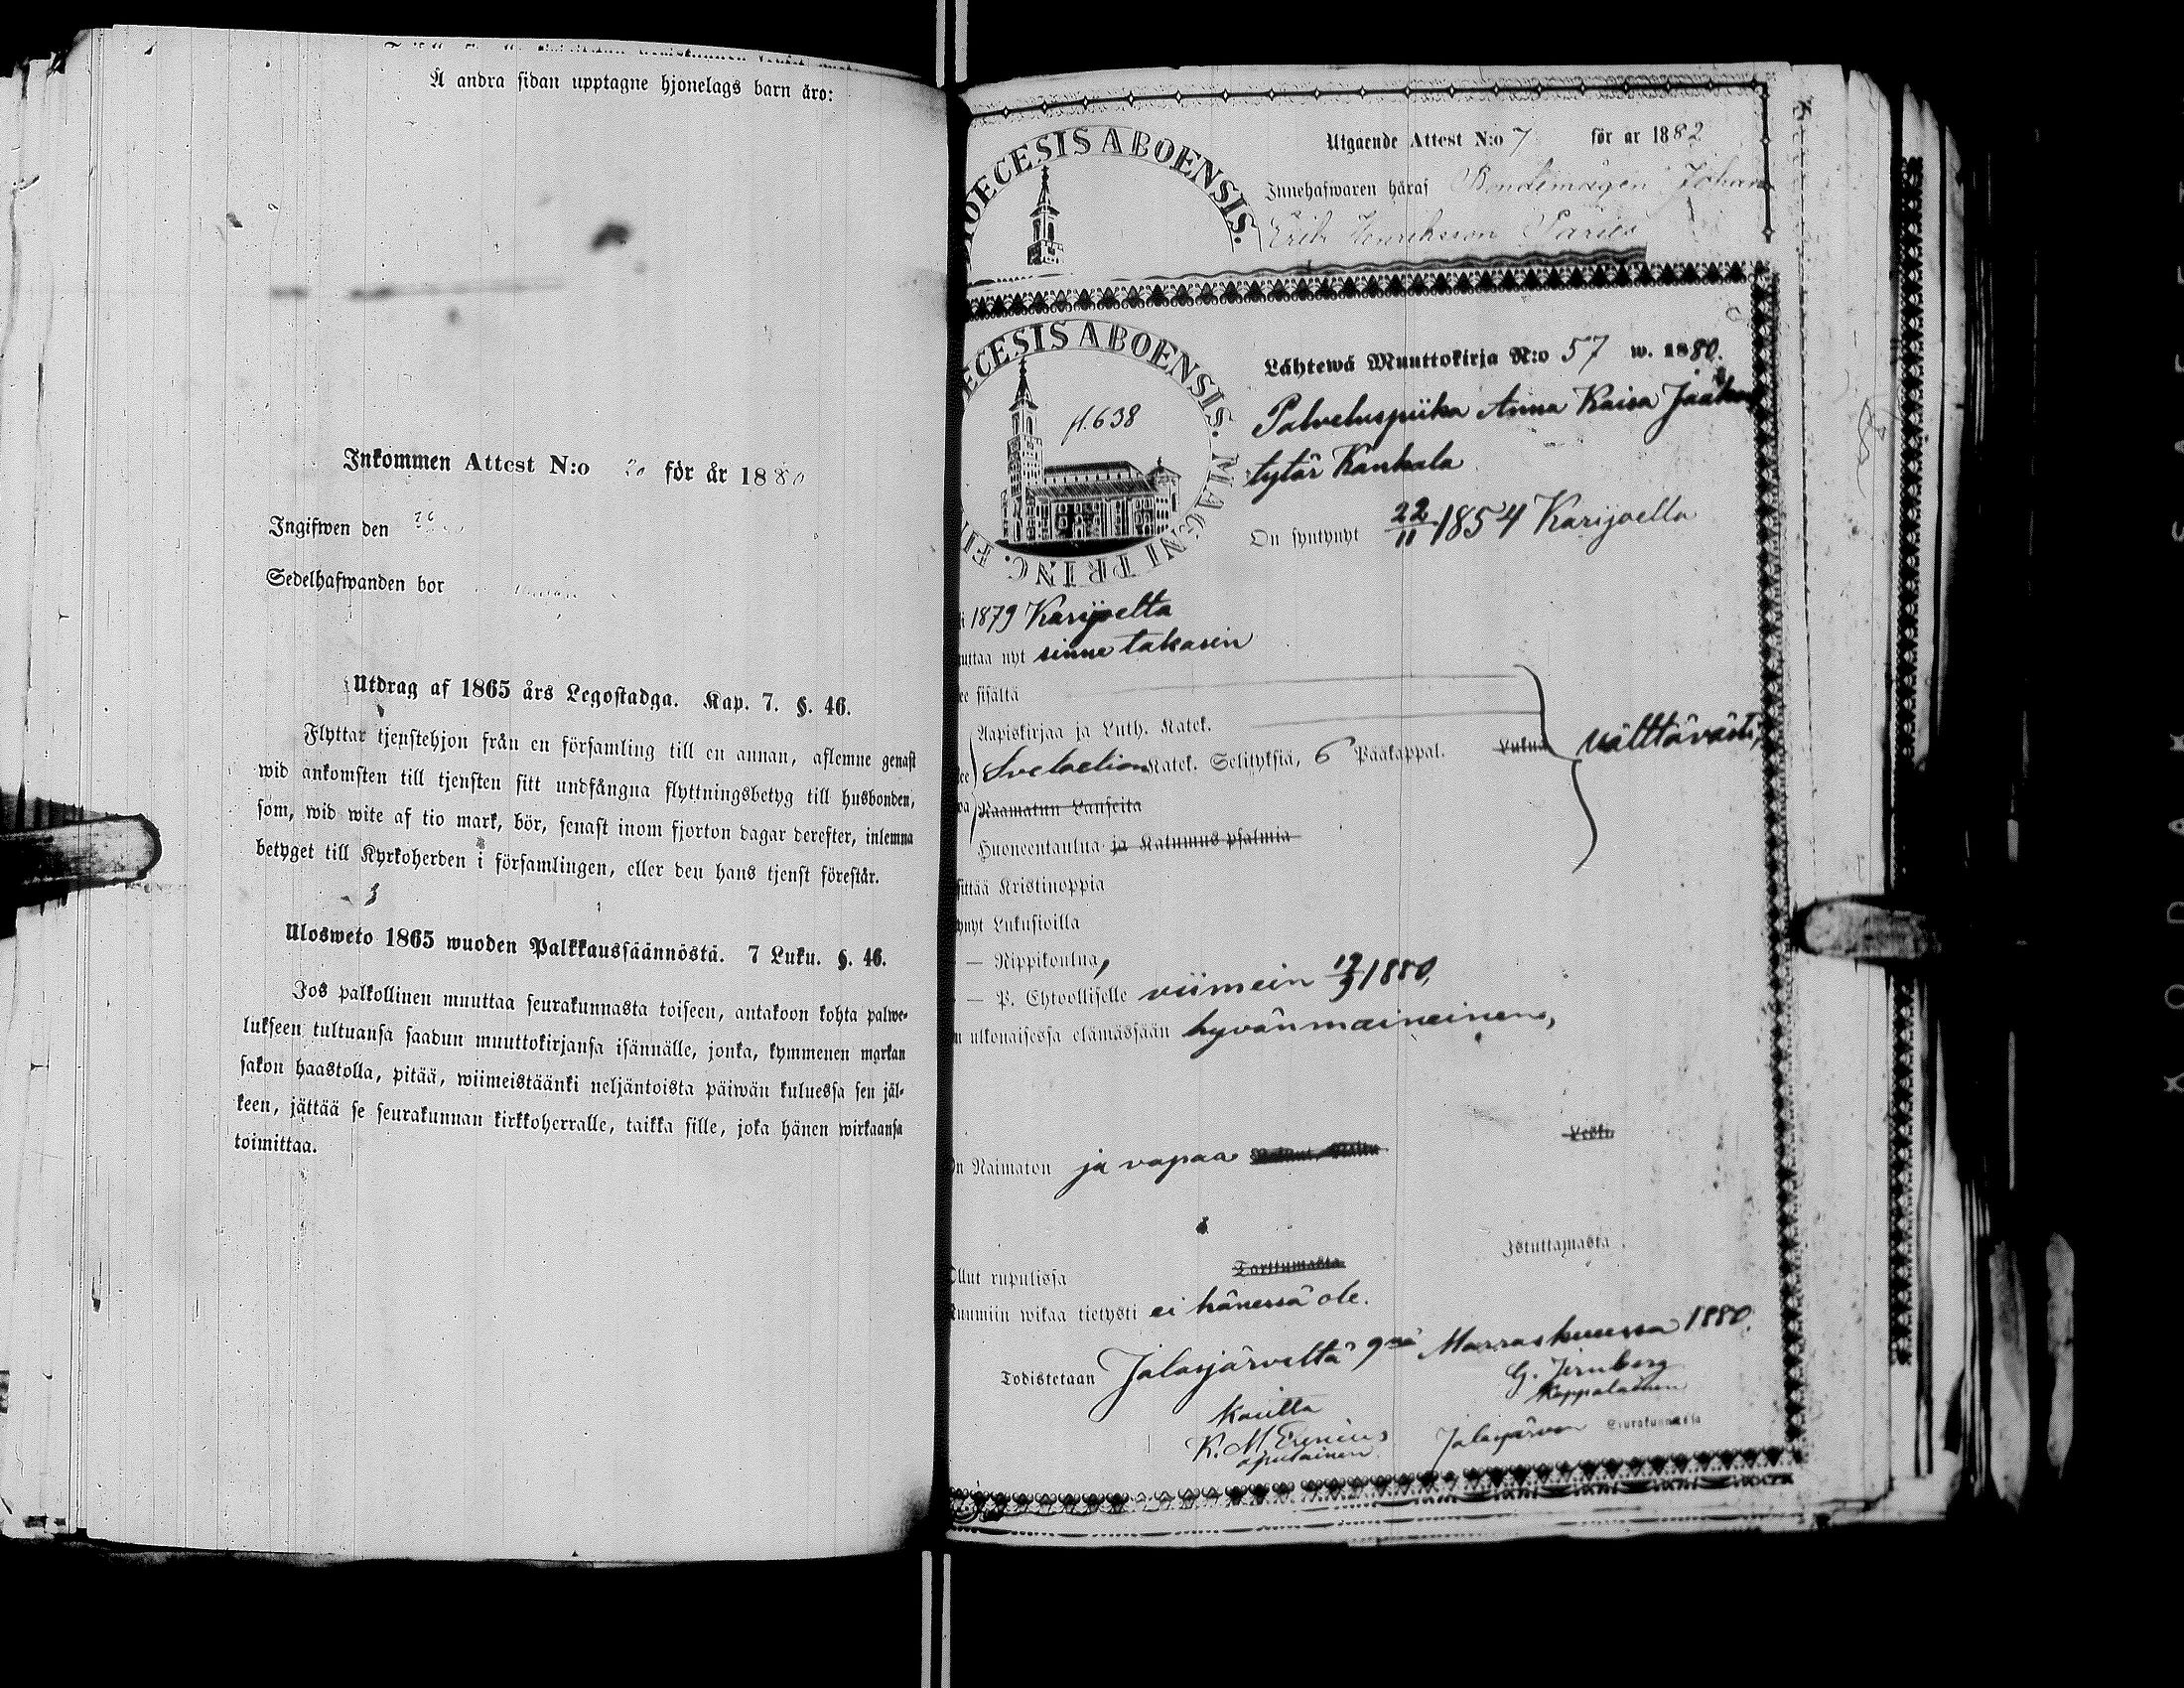 Å andra sidan upptagne hjonelags barn äro:
Inkommen Attest N:o 20 för år 1880
Ingifwen den
Sedelhafwanden bor
Utdrag af 1865 års Legostadga. Kap. 7. §. 46.
Flyttar tjenstehjon från en församling till en annan, aflemne genast
wid ankomsten till tjensten sitt undfångna flyttningsbetyg till husbonden,
som, wid wite af tio mark, bör, senast inom fjorton dagar derefter, inlemna
betyget till Kyrkoherden i församlingen, eller den hans tjenst förestår.
Ulosweto 1865 wuoden Palkkaussäännöstä. 7 Luku. §. 46.
Jos palkollinen muuttaa seurakunnasta toiseen, antakoon kohta palwe-
lukseen tultuansa saadun muuttokirjansa isännälle, jonka, kymmenen markan
sakon haastolla, pitää, wiimeistäänki neljäntoista päiwän kuluessa sen jäl-
keen, jättää se seurakunnan kirkkoherralle, taikka sille, joka hänen wirkaansa
toimittaa.
DIOECESIS ABOENSIS.
Utgaende Attest N:o 7 för ar 1882
Innehafwaren häraf Bondemågen Johan
Erik Henriksson
ECESIS ABOENSIS. MAGNI PRINC. FI
fl. 638
Lähtewä Muuttokirja N:o 57 w. 1880.
Palveluspiika Anna Kaisa Jaakon
tytär Kankala
On syntynyt 22/11 1854 Karijoella
i 1879 Karijoelta
uttaa nyt sinne takasin
ee sisältä
Aapiskirjaa ja Luth. Katek.
ee Svebelion Katek. Selityksiä, 6 Pääkappal. Lukua välttävästi,
wa Raamatun Lauseita
Huoneentaulua ja Katumus psalmia
sittää Kristinoppia
ynyt Lukusioilla
— Rippikoulua,
— P. Ehtoolliselle viimein 19/9 1880,
n ulkonaisessa elämässään hyvänmaineinen,
Leski
On Naimaton ja vapaa
Istuttamasta
Ollut rupulissa Tarttumasta
Ruumiin wikaa tietysti ei hänessä ole.
Todistetaan Jalasjärveltä 9nä Marraskuussa 1880.
G. Jernberg
Kappalainen
Kautta
K. M. Erenius
apulainen.
Jalasjärven Seurakunnassa
KODAK SAFE